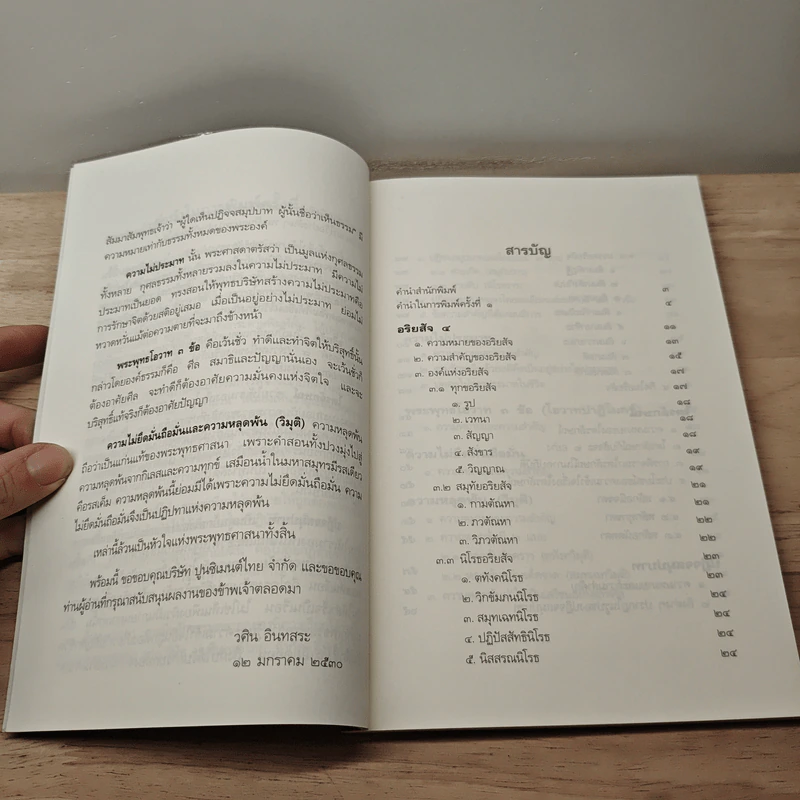 สัมมาสัมพุทธเจ้าว่า "ผู้ใดเห็นปฏิจจสมุปบาท ผู้นั้นชื่อว่าเห็นธรรม" มี
ความหมายเท่ากับธรรมทั้งหมดของพระองค์
ความไม่ประมาท นั้น พระศาสดาตรัสว่า เป็นมูลแห่งกุศลธรรม
ทั้งหลาย กุศลธรรมทั้งหลายรวมลงในความไม่ประมาท มีความไม่
ประมาทเป็นยอด ทรงสอนให้พุทธบริษัทสร้างความไม่ประมาทคือ
การรักษาจิตด้วยสติอยู่เสมอ เมื่อเป็นอยู่อย่างไม่ประมาท ย่อมไม่
หวาดหวั่นแม้ต่อความตายที่จะมาถึงข้างหน้า
พระพุทธโอวาท ๓ ข้อ คือเว้นชั่ว ทำดีและทำจิตให้บริสุทธิ์นั้น
กล่าวโดยองค์ธรรมก็คือ ศีล สมาธิและปัญญานั่นเอง จะเว้นชั่วก็
ต้องอาศัยศีล จะทำดีก็ต้องอาศัยความมั่นคงแห่งจิตใจ และจะ
บริสุทธิ์แท้จริงก็ต้องอาศัยปัญญา
ความไม่ยึดมั่นถือมั่นและความหลุดพ้น (วิมุติ) ความหลุดพ้น
ถือว่าเป็นแก่นแท้ของพระพุทธศาสนา เพราะคำสอนทั้งปวงมุ่งไปสู่
ความหลุดพ้นจากกิเลสและความทุกข์ เสมือนน้ำในมหาสมุทรมีรสเดียว
คือรสเค็ม ความหลุดพ้นนี้ย่อมมีได้เพราะความไม่ยึดมั่นถือมั่น ความ
ไม่ยึดมั่นถือมั่นจึงเป็นปฏิปทาแห่งความหลุดพ้น
เหล่านี้ล้วนเป็นหัวใจแห่งพระพุทธศาสนาทั้งสิ้น
พร้อมนี้ ขอขอบคุณบริษัท ปูนซิเมนต์ไทย จำกัด และขอขอบคุณ
ท่านผู้อ่านที่กรุณาสนับสนุนผลงานของข้าพเจ้าตลอดมา
วศิน อินทสระ
๑๒ มกราคม ๒๕๓๐
สารบัญ
คำนำสำนักพิมพ์ ๓
คำนำในการพิมพ์ครั้งที่ ๑ ๕
อริยสัจ ๔ ๑๑
๑. ความหมายของอริยสัจ ๑๓
๒. ความสำคัญของอริยสัจ ๑๕
๓. องค์แห่งอริยสัจ ๑๗
๓.๑ ทุกขอริยสัจ ๑๗
๑. รูป ๑๘
๒. เวทนา ๑๘
๓. สัญญา ๑๘
๔. สังขาร ๑๙
๕. วิญญาณ ๑๙
๓.๒ สมุทัยอริยสัจ ๒๑
๑. กามตัณหา ๒๑
๒. ภวตัณหา ๒๒
๓. วิภวตัณหา ๒๒
๓.๓ นิโรธอริยสัจ ๒๓
๑. ตทังคนิโรธ ๒๓
๒. วิกขัมภนนิโรธ ๒๔
๓. สมุทเฉทนิโรธ ๒๔
๔. ปฏิปัสสัทธินิโรธ ๒๔
๕. นิสสรณนิโรธ ๒๔